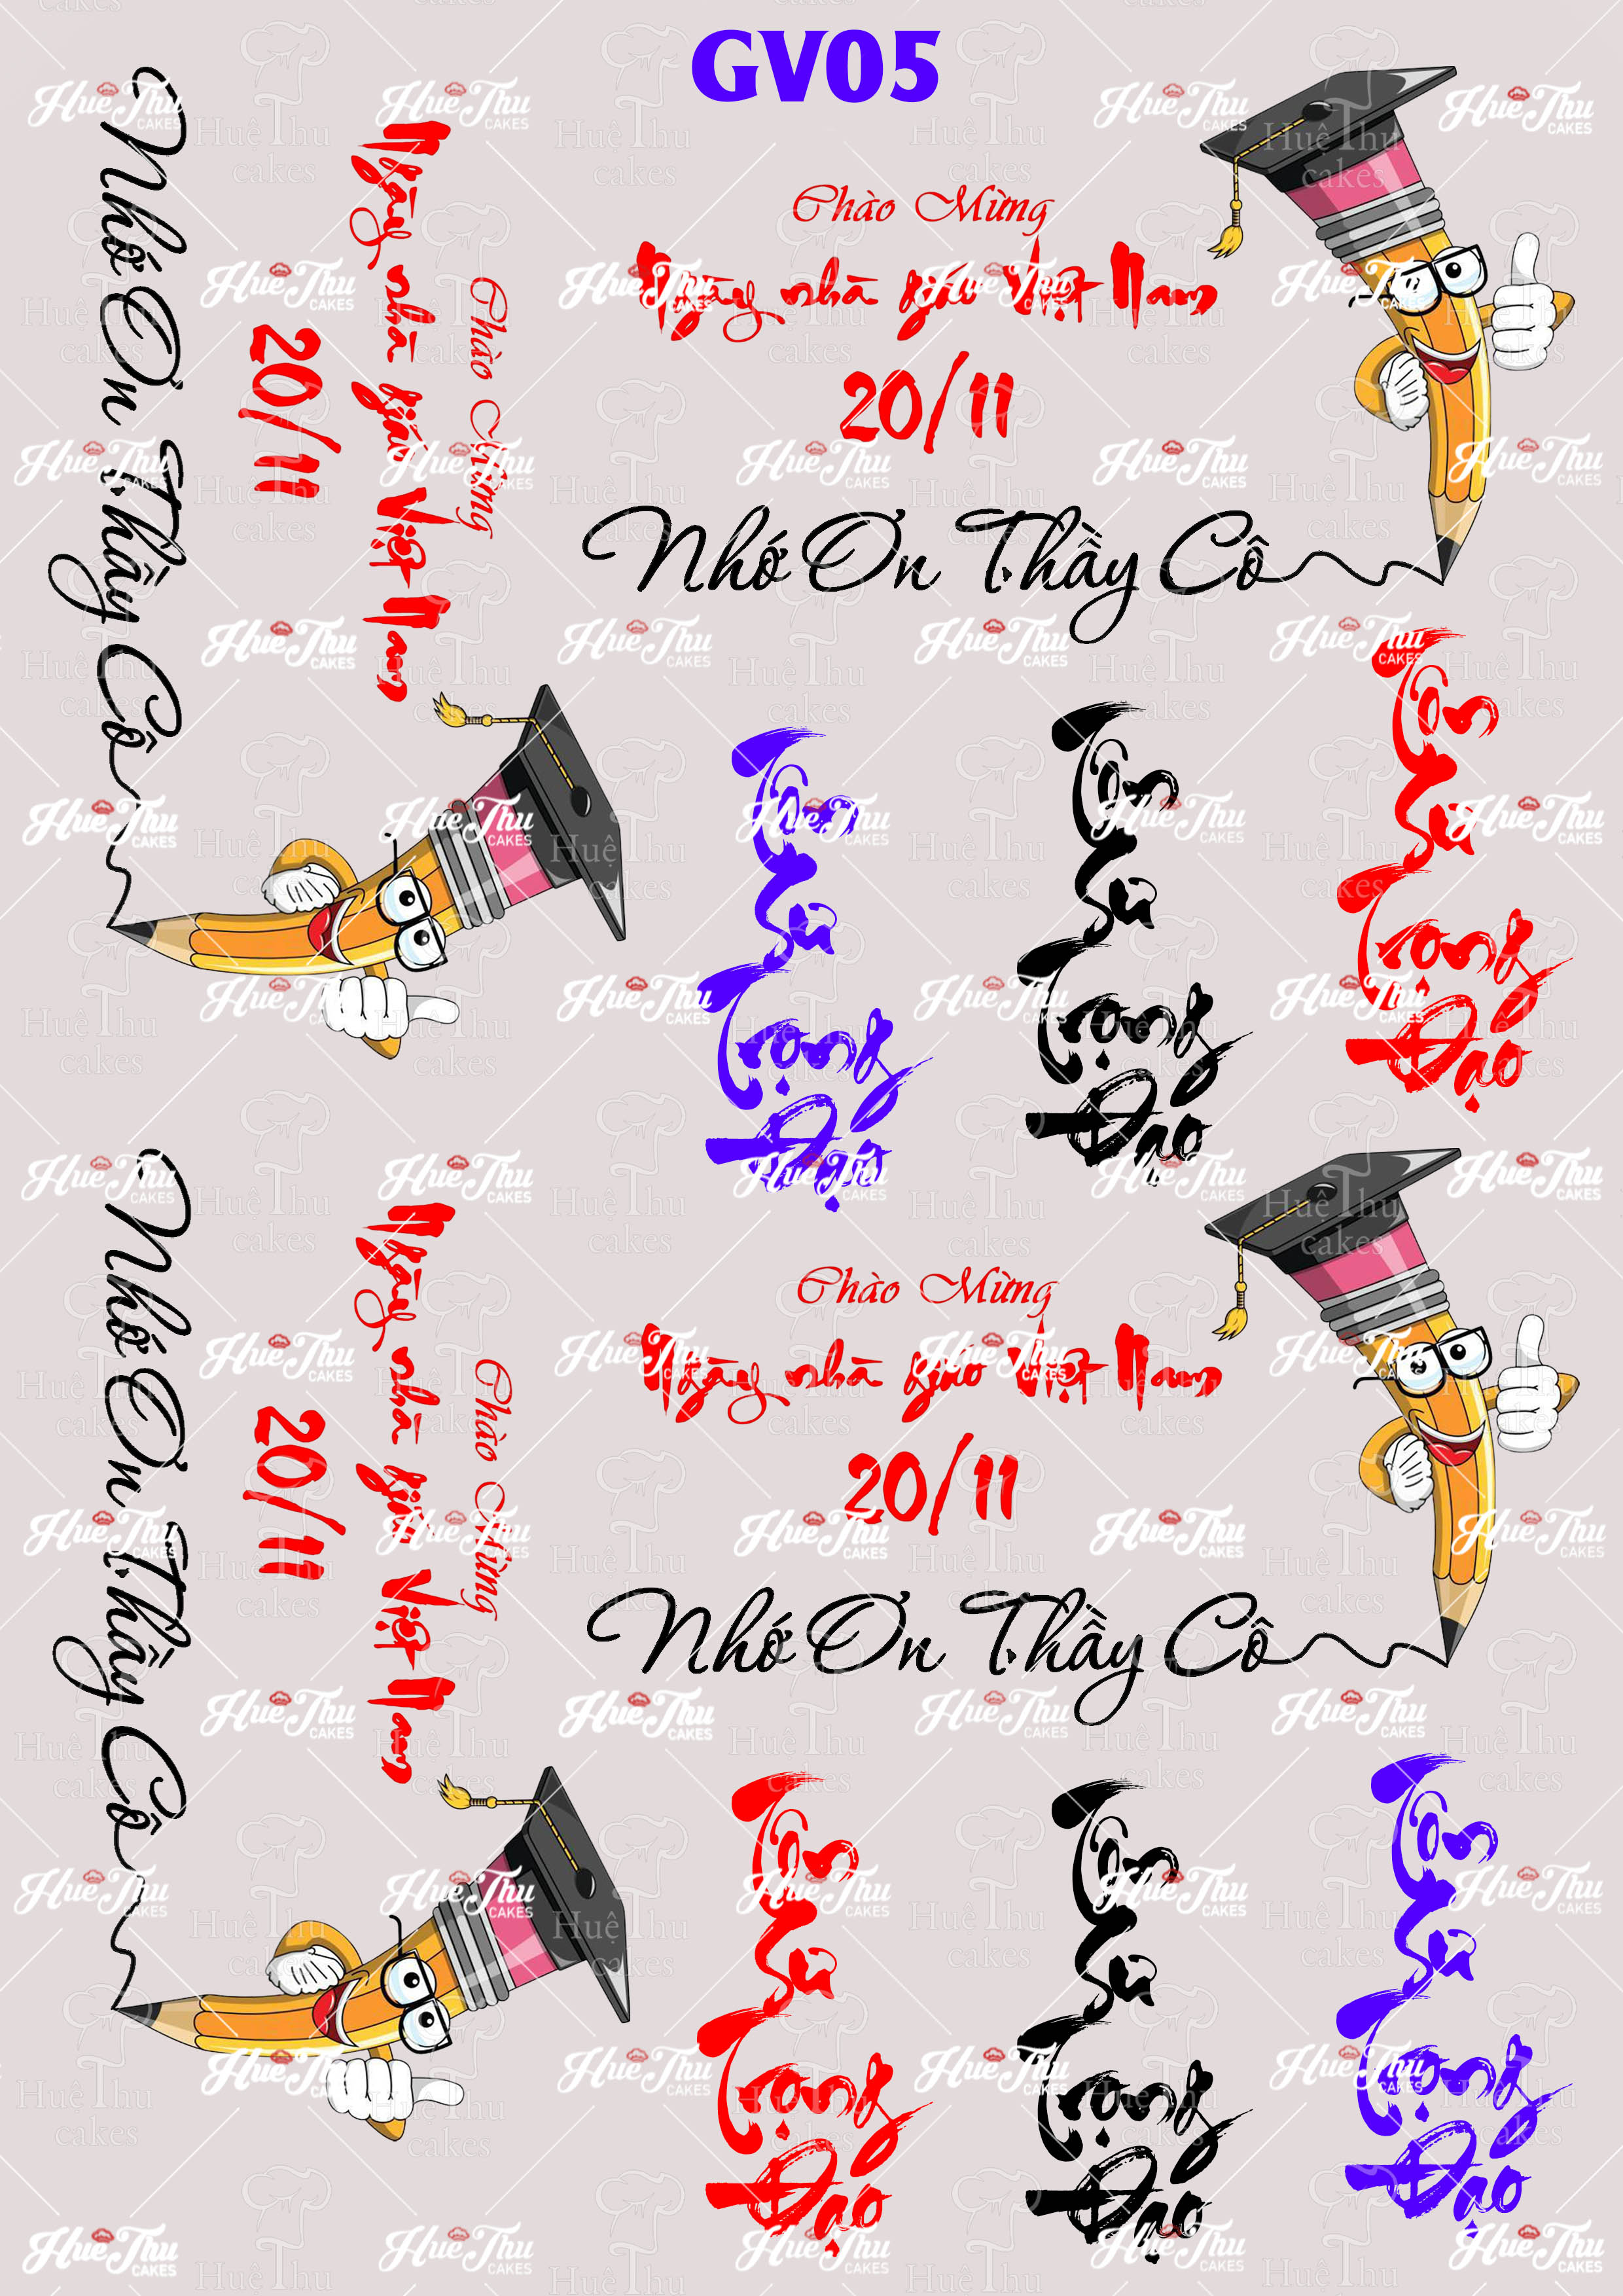 GV05
Nhớ Ơn Thầy Cô
Chào Mừng
Ngày nhà giáo Việt Nam
20/11
Chào Mừng
Ngày nhà giáo Việt Nam
20/11
Nhớ Ơn Thầy Cô
Tôn
Sư
Trọng
Đạo
Tôn
Sư
Trọng
Đạo
Tôn
Sư
Trọng
Đạo
Nhớ Ơn Thầy Cô
Chào Mừng
Ngày nhà giáo Việt Nam
20/11
Chào Mừng
Ngày nhà giáo Việt Nam
20/11
Nhớ Ơn Thầy Cô
Tôn
Sư
Trọng
Đạo
Tôn
Sư
Trọng
Đạo
Tôn
Sư
Trọng
Đạo
Huê Thu
CAKES
Huê Thu
cakes